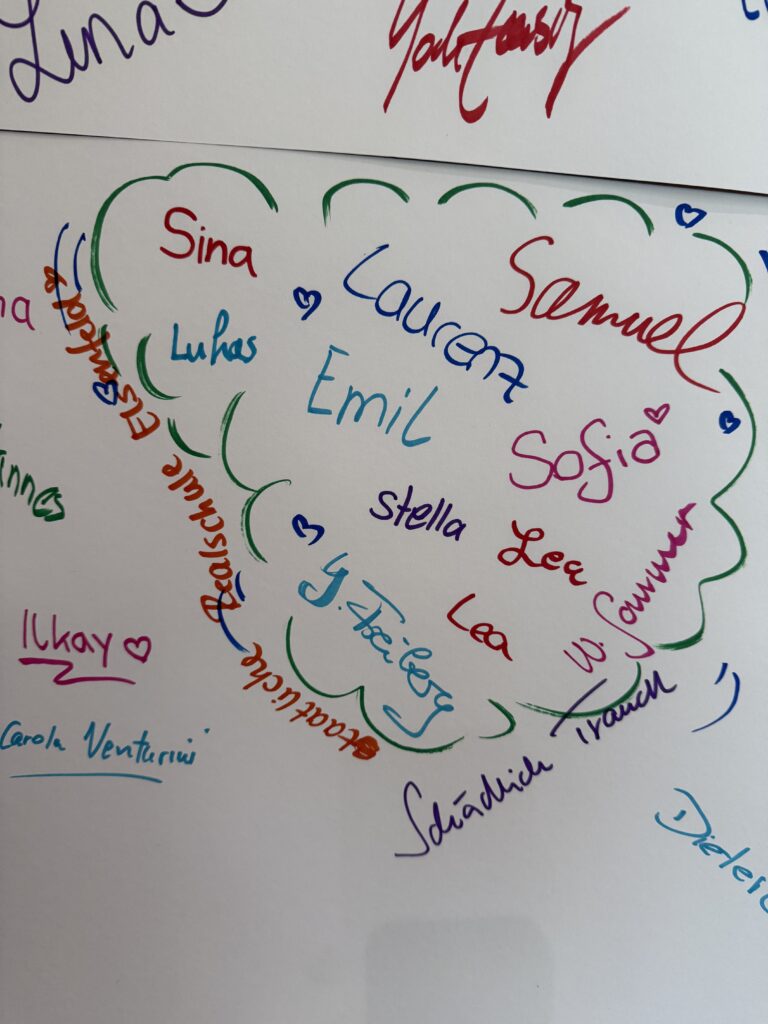 Lina
Sina
Laurenz
Samuel
Lukas
Emil
Sofia
stella
Lea
Lea
W. Sommer
Staatliche Realschule Elsenfeld
Ilkay
Carola Venturini
Schädlich
Trauch